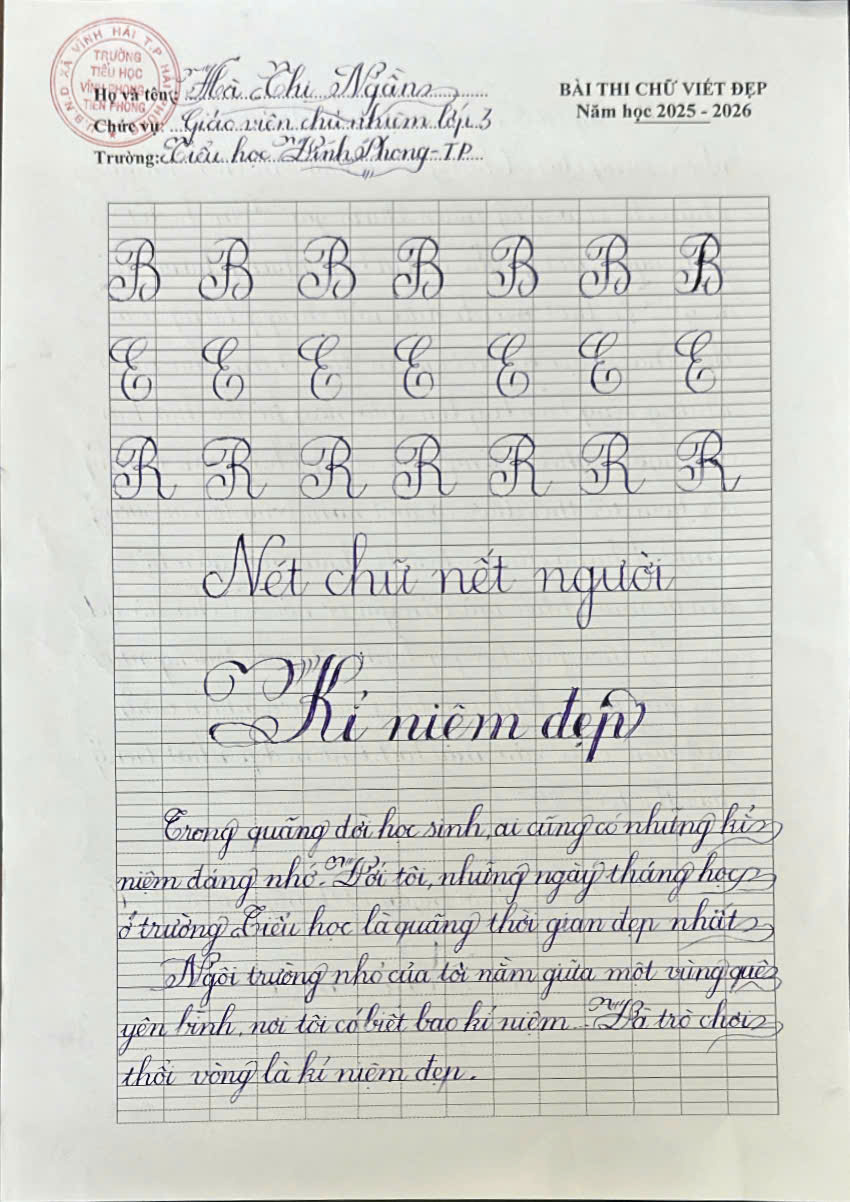 U.B.N.D XÃ VĨNH HẢI T.P HẢI PHÒNG
TRƯỜNG
TIỂU HỌC
VĨNH PHONG
TIỀN PHONG
Họ và tên: Hà Thị Ngần
Chức vụ: Giáo viên chủ nhiệm lớp 3
Trường: Tiểu học Vĩnh Phong - T.P
BÀI THI CHỮ VIẾT ĐẸP
Năm học 2025 - 2026
B B B B B B B
E E E E E E E
R R R R R R R
Nét chữ nết người
Kỉ niệm đẹp
Trong quãng đời học sinh, ai cũng có những kỉ
niệm đáng nhớ. Với tôi, những ngày tháng học
ở trường Tiểu học là quãng thời gian đẹp nhất
Ngôi trường nhỏ của tôi nằm giữa một vùng quê
yên bình, nơi tôi có biết bao kỉ niệm. Và trò chơi
thổi vòng là kí niệm đẹp.